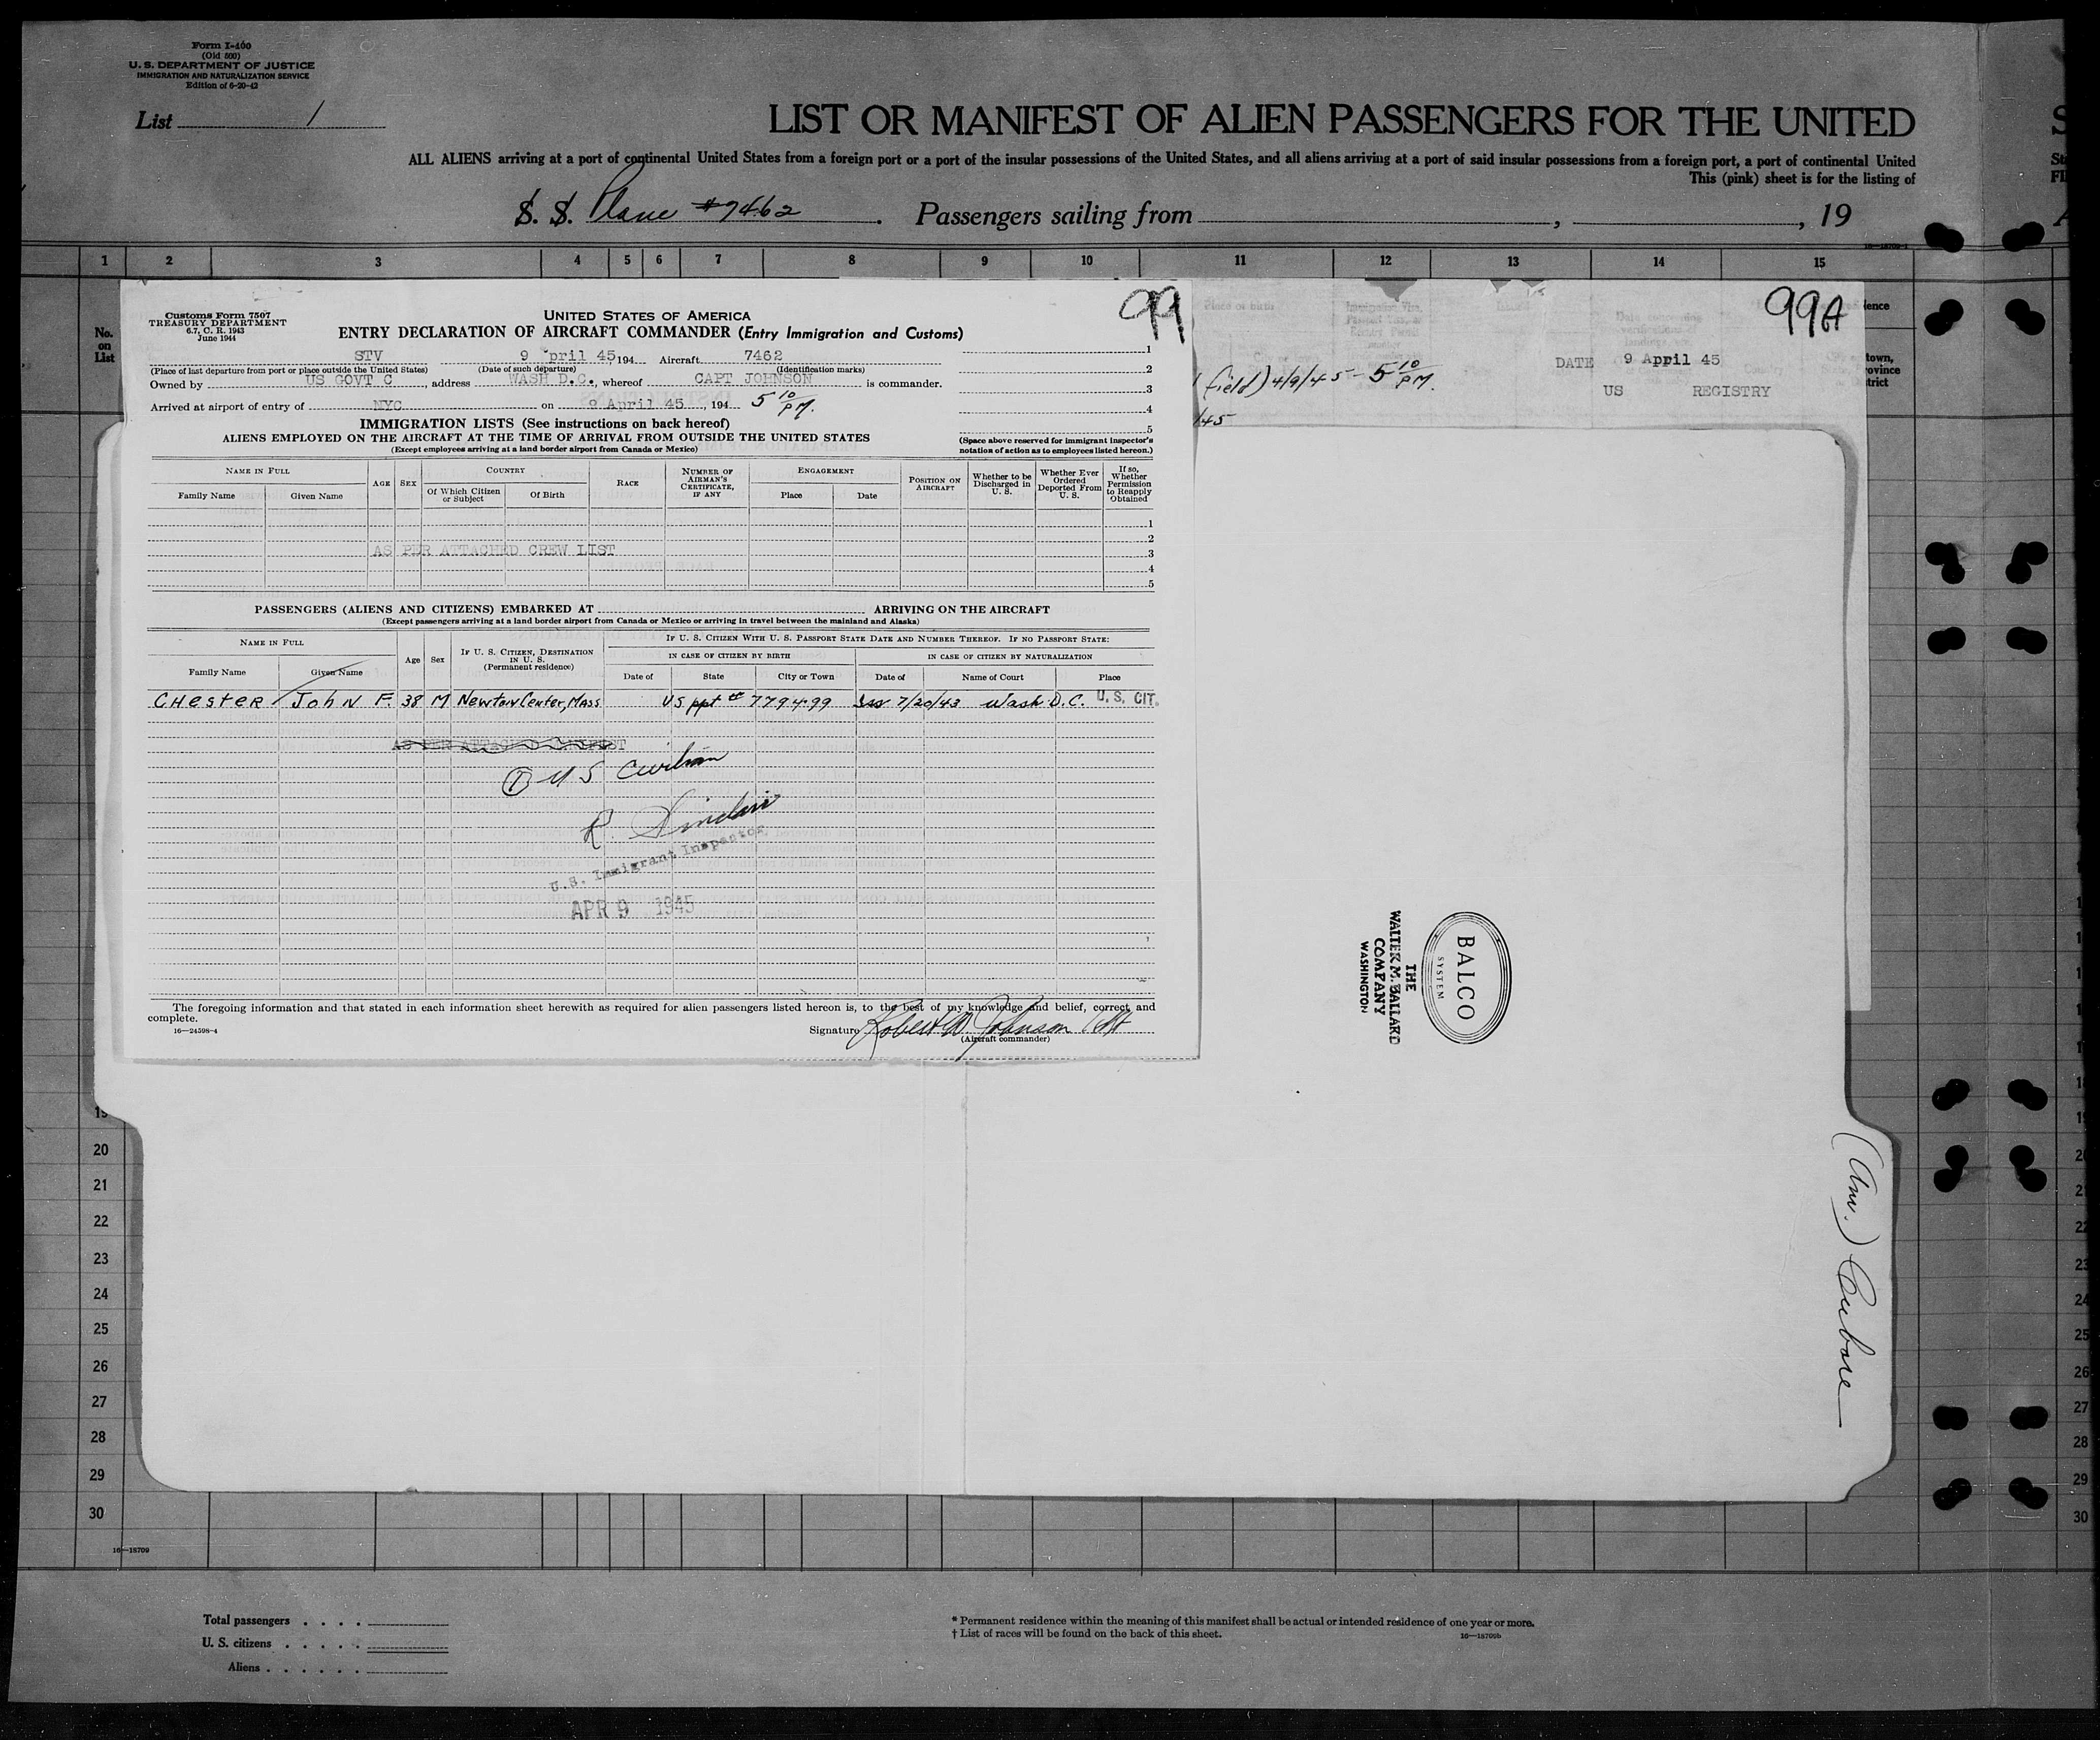 Form I-460
(Old 500)
U. S. DEPARTMENT OF JUSTICE
IMMIGRATION AND NATURALIZATION SERVICE
Edition of 6-20-42
List 1
LIST OR MANIFEST OF ALIEN PASSENGERS FOR THE UNITED
ALL ALIENS arriving at a port of continental United States from a foreign port or a port of the insular possessions of the United States, and all aliens arriving at a port of said insular possessions from a foreign port, a port of continental United
This (pink) sheet is for the listing of
S. S. Plane #7462 Passengers sailing from , , 19
1 2 3 4 5 6 7 8 9 10 11 12 13 14 15
No. on List
99
Customs Form 7507
TREASURY DEPARTMENT
6.7, C. R. 1943
June 1944
UNITED STATES OF AMERICA
ENTRY DECLARATION OF AIRCRAFT COMMANDER (Entry Immigration and Customs)
STV 9 pril 45, 194 Aircraft 7462
(Place of last departure from port or place outside the United States) (Date of such departure) (Identification marks)
Owned by US GOVT C, address WASH D.C., whereof CAPT JOHNSON is commander.
Arrived at airport of entry of NYC on 9 April 45, 194 5 10 PM.
1
2
3
4
5
IMMIGRATION LISTS (See instructions on back hereof)
ALIENS EMPLOYED ON THE AIRCRAFT AT THE TIME OF ARRIVAL FROM OUTSIDE THE UNITED STATES
(Except employees arriving at a land border airport from Canada or Mexico)
(Space above reserved for immigrant inspector's notation of action as to employees listed hereon.)
NAME IN FULL AGE SEX COUNTRY RACE NUMBER OF AIRMAN'S CERTIFICATE, IF ANY ENGAGEMENT POSITION ON AIRCRAFT Whether to be Discharged in U. S. Whether Ever Ordered Deported From U. S. If so, Whether Permission to Reapply Obtained
Family Name Given Name Of Which Citizen or Subject Of Birth Place Date
1
2
AS PER ATTACHED CREW LIST 3
4
5
PASSENGERS (ALIENS AND CITIZENS) EMBARKED AT ARRIVING ON THE AIRCRAFT
(Except passengers arriving at a land border airport from Canada or Mexico or arriving in travel between the mainland and Alaska)
NAME IN FULL Age Sex IF U. S. CITIZEN, DESTINATION IN U. S. (Permanent residence) IF U. S. CITIZEN WITH U. S. PASSPORT STATE DATE AND NUMBER THEREOF. IF NO PASSPORT STATE:
IN CASE OF CITIZEN BY BIRTH IN CASE OF CITIZEN BY NATURALIZATION
Family Name Given Name Date of State City or Town Date of Name of Court Place
CHESTER John F. 38 M Newton Center, Mass US ppt # 779499 Iss 7/20/43 Wash D.C. U.S. CIT.
AS PER ATTACHED MANIFEST
1 US Civilian
U.S. Immigrant Inspector
APR 9 1945
The foregoing information and that stated in each information sheet herewith as required for alien passengers listed hereon is, to the best of my knowledge and belief, correct and
complete.
16—24598-4
Signature Robert W. Johnson
(Aircraft commander)
99A
field) 4/9/45 - 5 10 PM.
/45
DATE 9 April 45
US REGISTRY
BALCO
SYSTEM
THE
WALTER M. BALLARD
COMPANY
WASHINGTON
19
20
21
22
23
24
25
26
27
28
29
30
16—18709
Total passengers
U. S. citizens
Aliens
* Permanent residence within the meaning of this manifest shall be actual or intended residence of one year or more.
† List of races will be found on the back of this sheet.
16—18709b